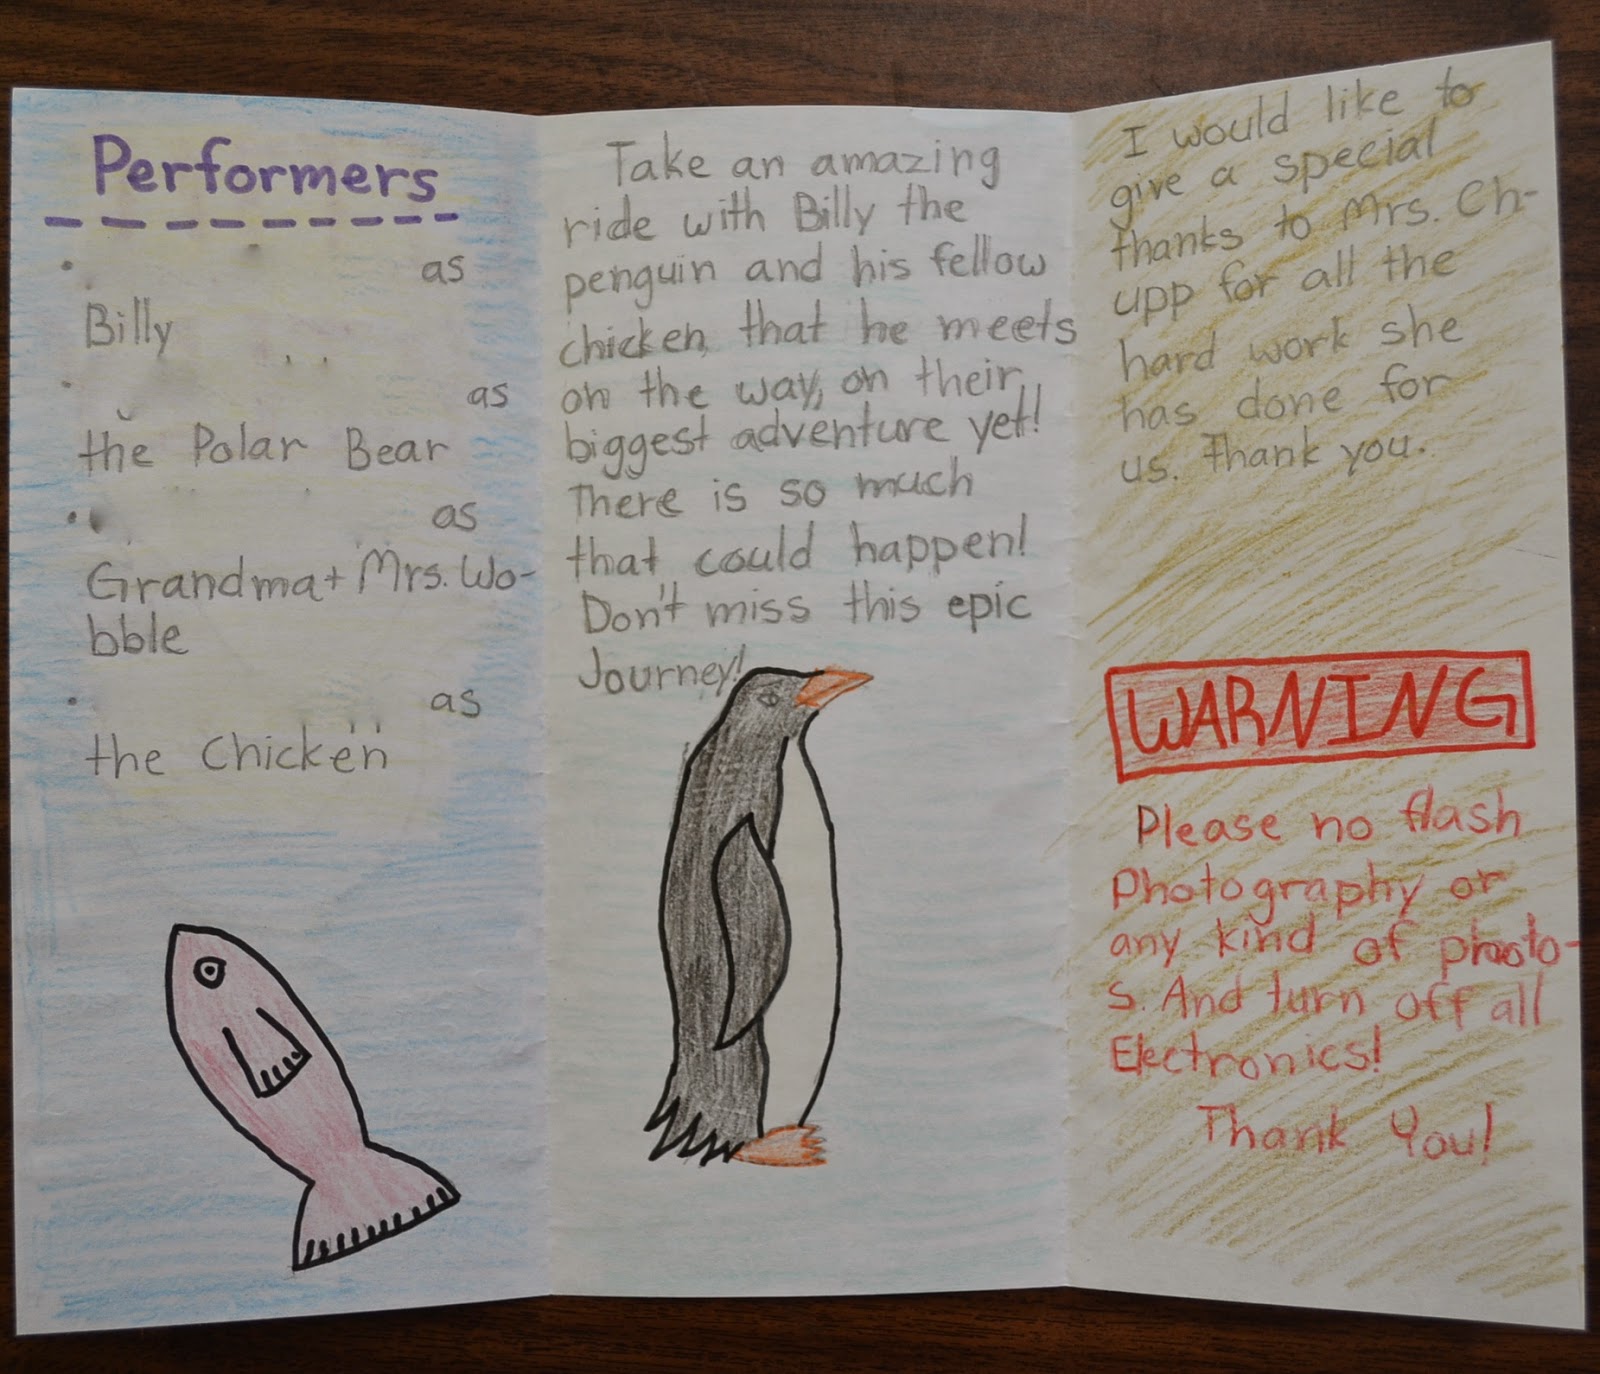 Performers
• as
Billy
• as
the Polar Bear
• as
Grandma + Mrs. Wo-
bble
• as
the Chicken
Take an amazing
ride with Billy the
penguin and his fellow
chicken, that he meets
on the way, on their
biggest adventure yet!
There is so much
that could happen!
Don't miss this epic
Journey!
I would like to
give a special
thanks to Mrs. Ch-
upp for all the
hard work she
has done for
us. Thank you.
WARNING
Please no flash
Photography or
any kind of photo-
s. And turn off all
Electronics!
Thank You!